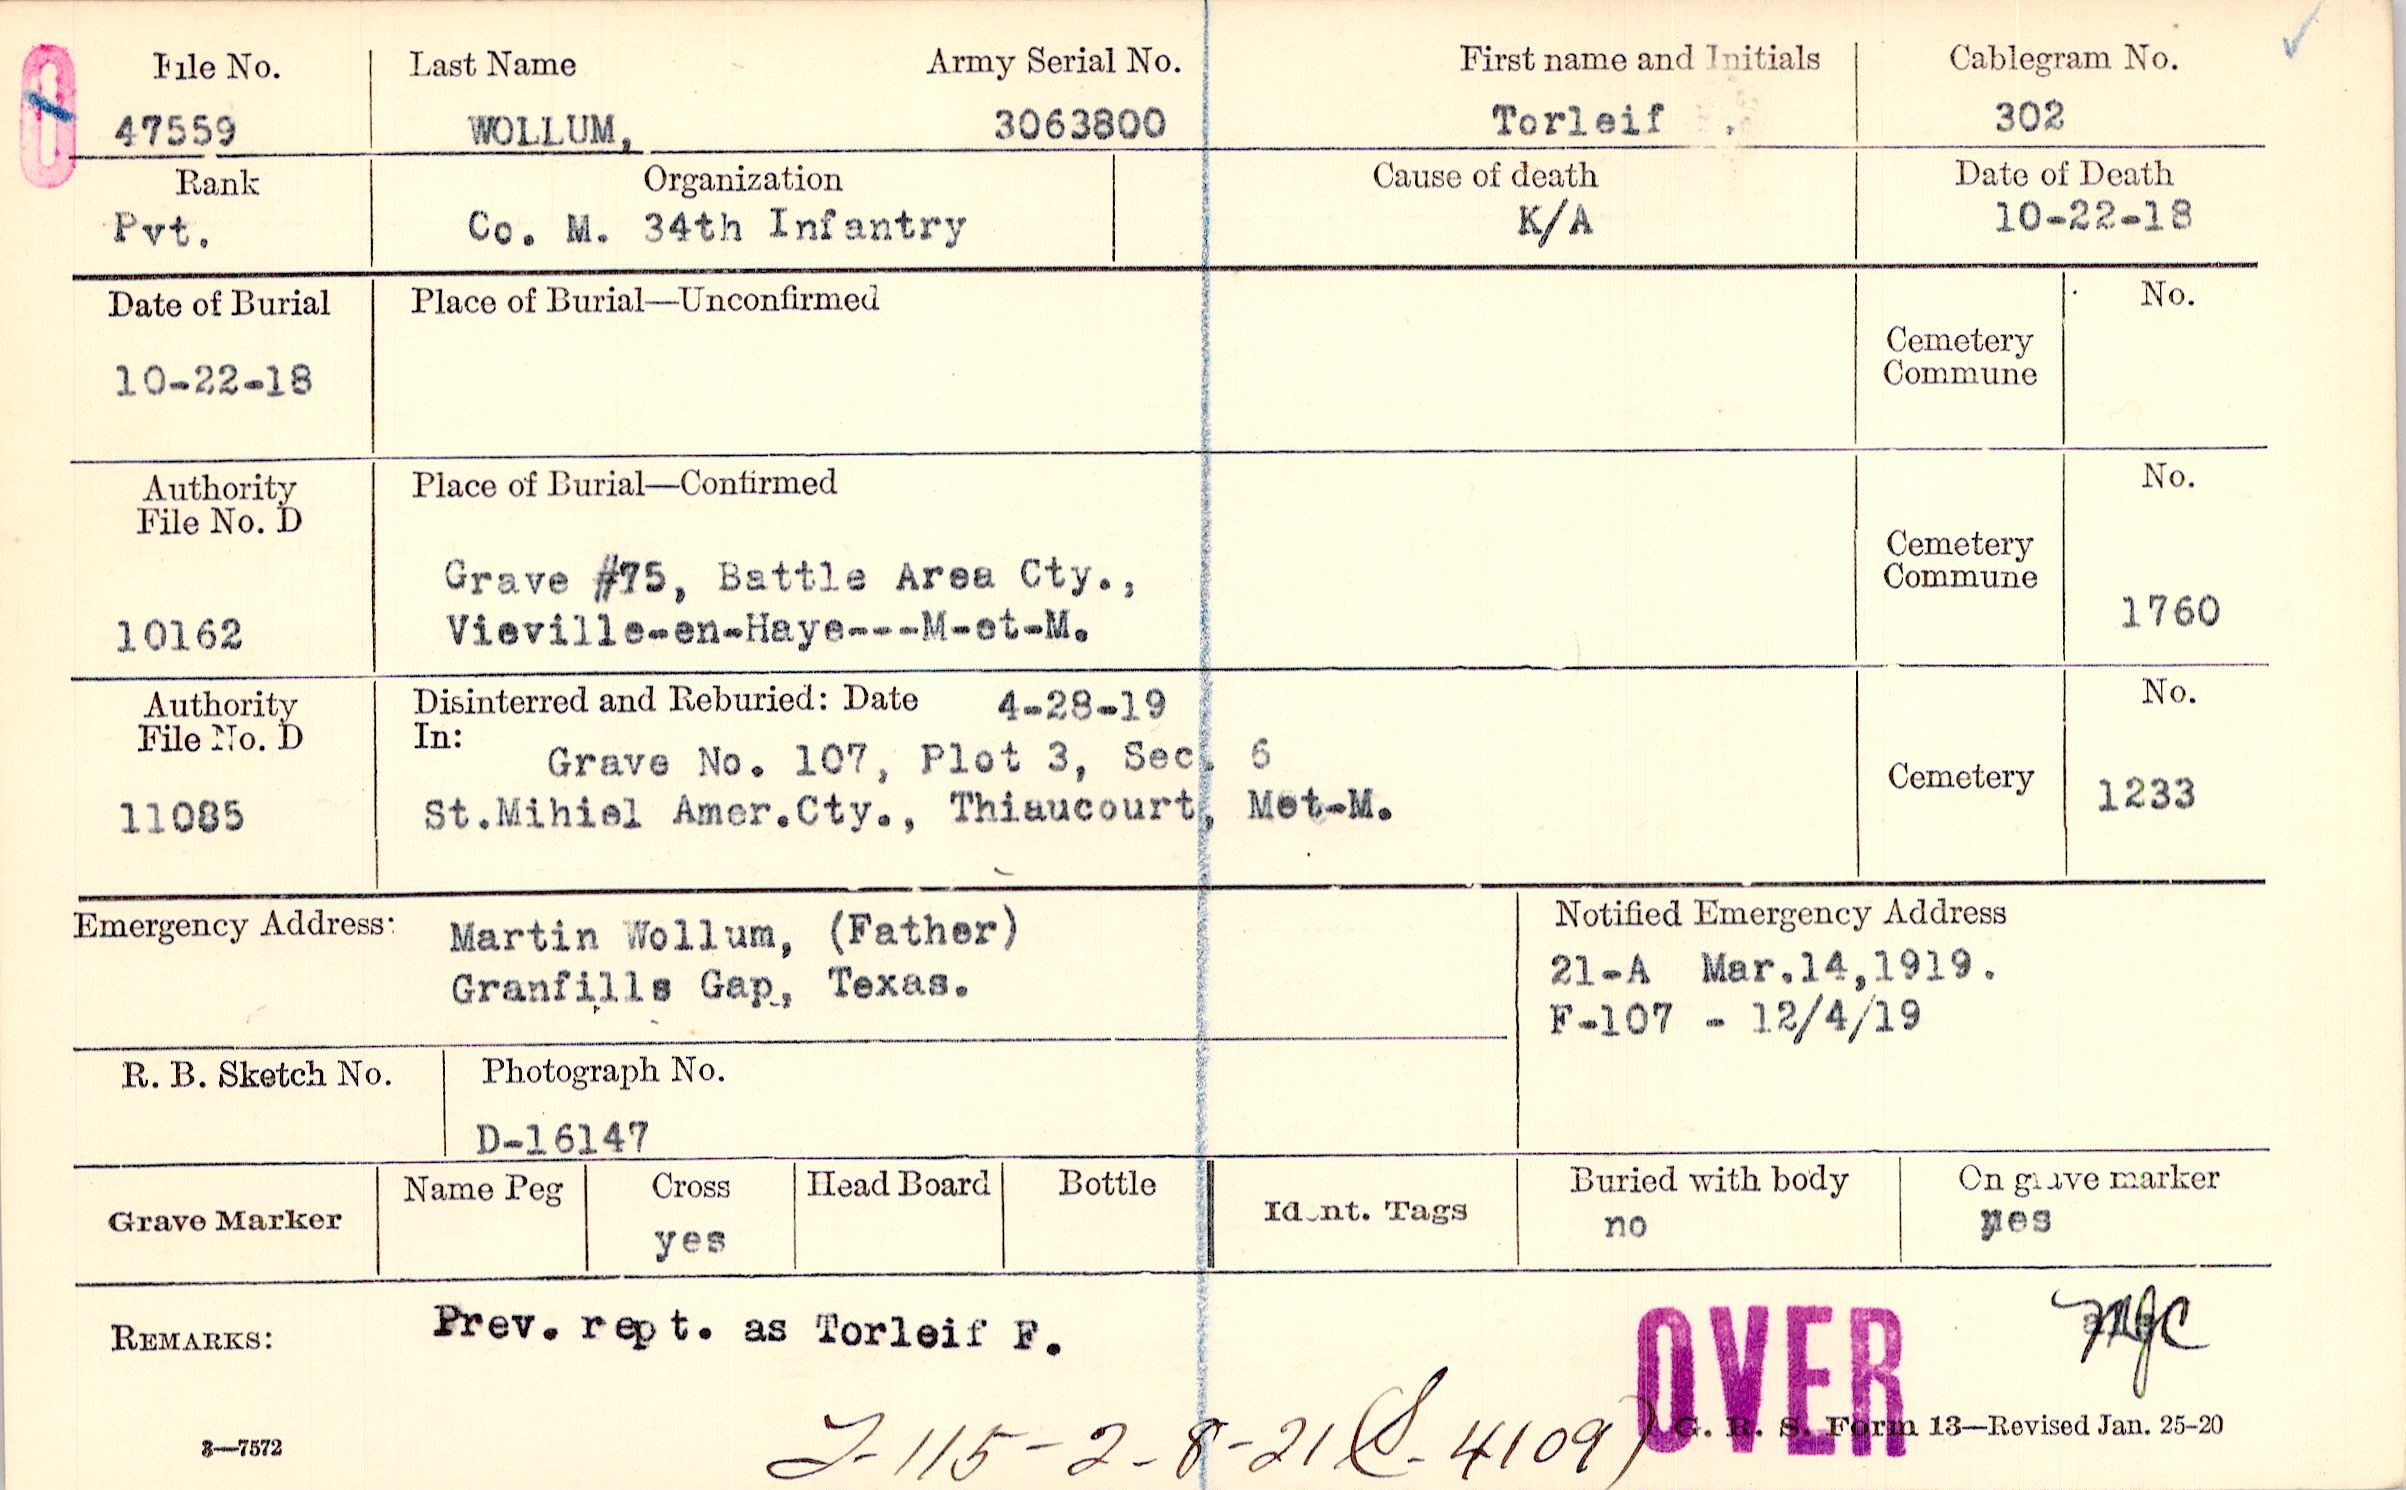 File No. Last Name Army Serial No. First name and Initials Cablegram No.
47559 WOLLUM, 3063800 Torleif . 302
Rank Organization Cause of death Date of Death
Pvt. Co. M. 34th Infantry K/A 10-22-18
Date of Burial Place of Burial—Unconfirmed No.
Cemetery
Commune
10-22-18
Authority Place of Burial—Confirmed No.
File No. D
Cemetery
Commune
Grave #75, Battle Area Cty.,
10162 Vieville-en-Haye---M-et-M. 1760
Authority Disinterred and Reburied: Date 4-28-19 No.
File No. D In:
Grave No. 107, Plot 3, Sec. 6
Cemetery 1233
11085 St.Mihiel Amer.Cty., Thiaucourt, Met-M.
Emergency Address: Martin Wollum, (Father) Notified Emergency Address
Granfills Gap, Texas. 21-A Mar.14,1919.
F-107 - 12/4/19
R. B. Sketch No. Photograph No.
D-16147
Grave Marker Name Peg Cross Head Board Bottle Ident. Tags Buried with body On grave marker
yes no yes
REMARKS: Prev. rept. as Torleif F.
OVER
-115-2-8-21 (S-4109)
3—7572 G. R. S. Form 13—Revised Jan. 25-20